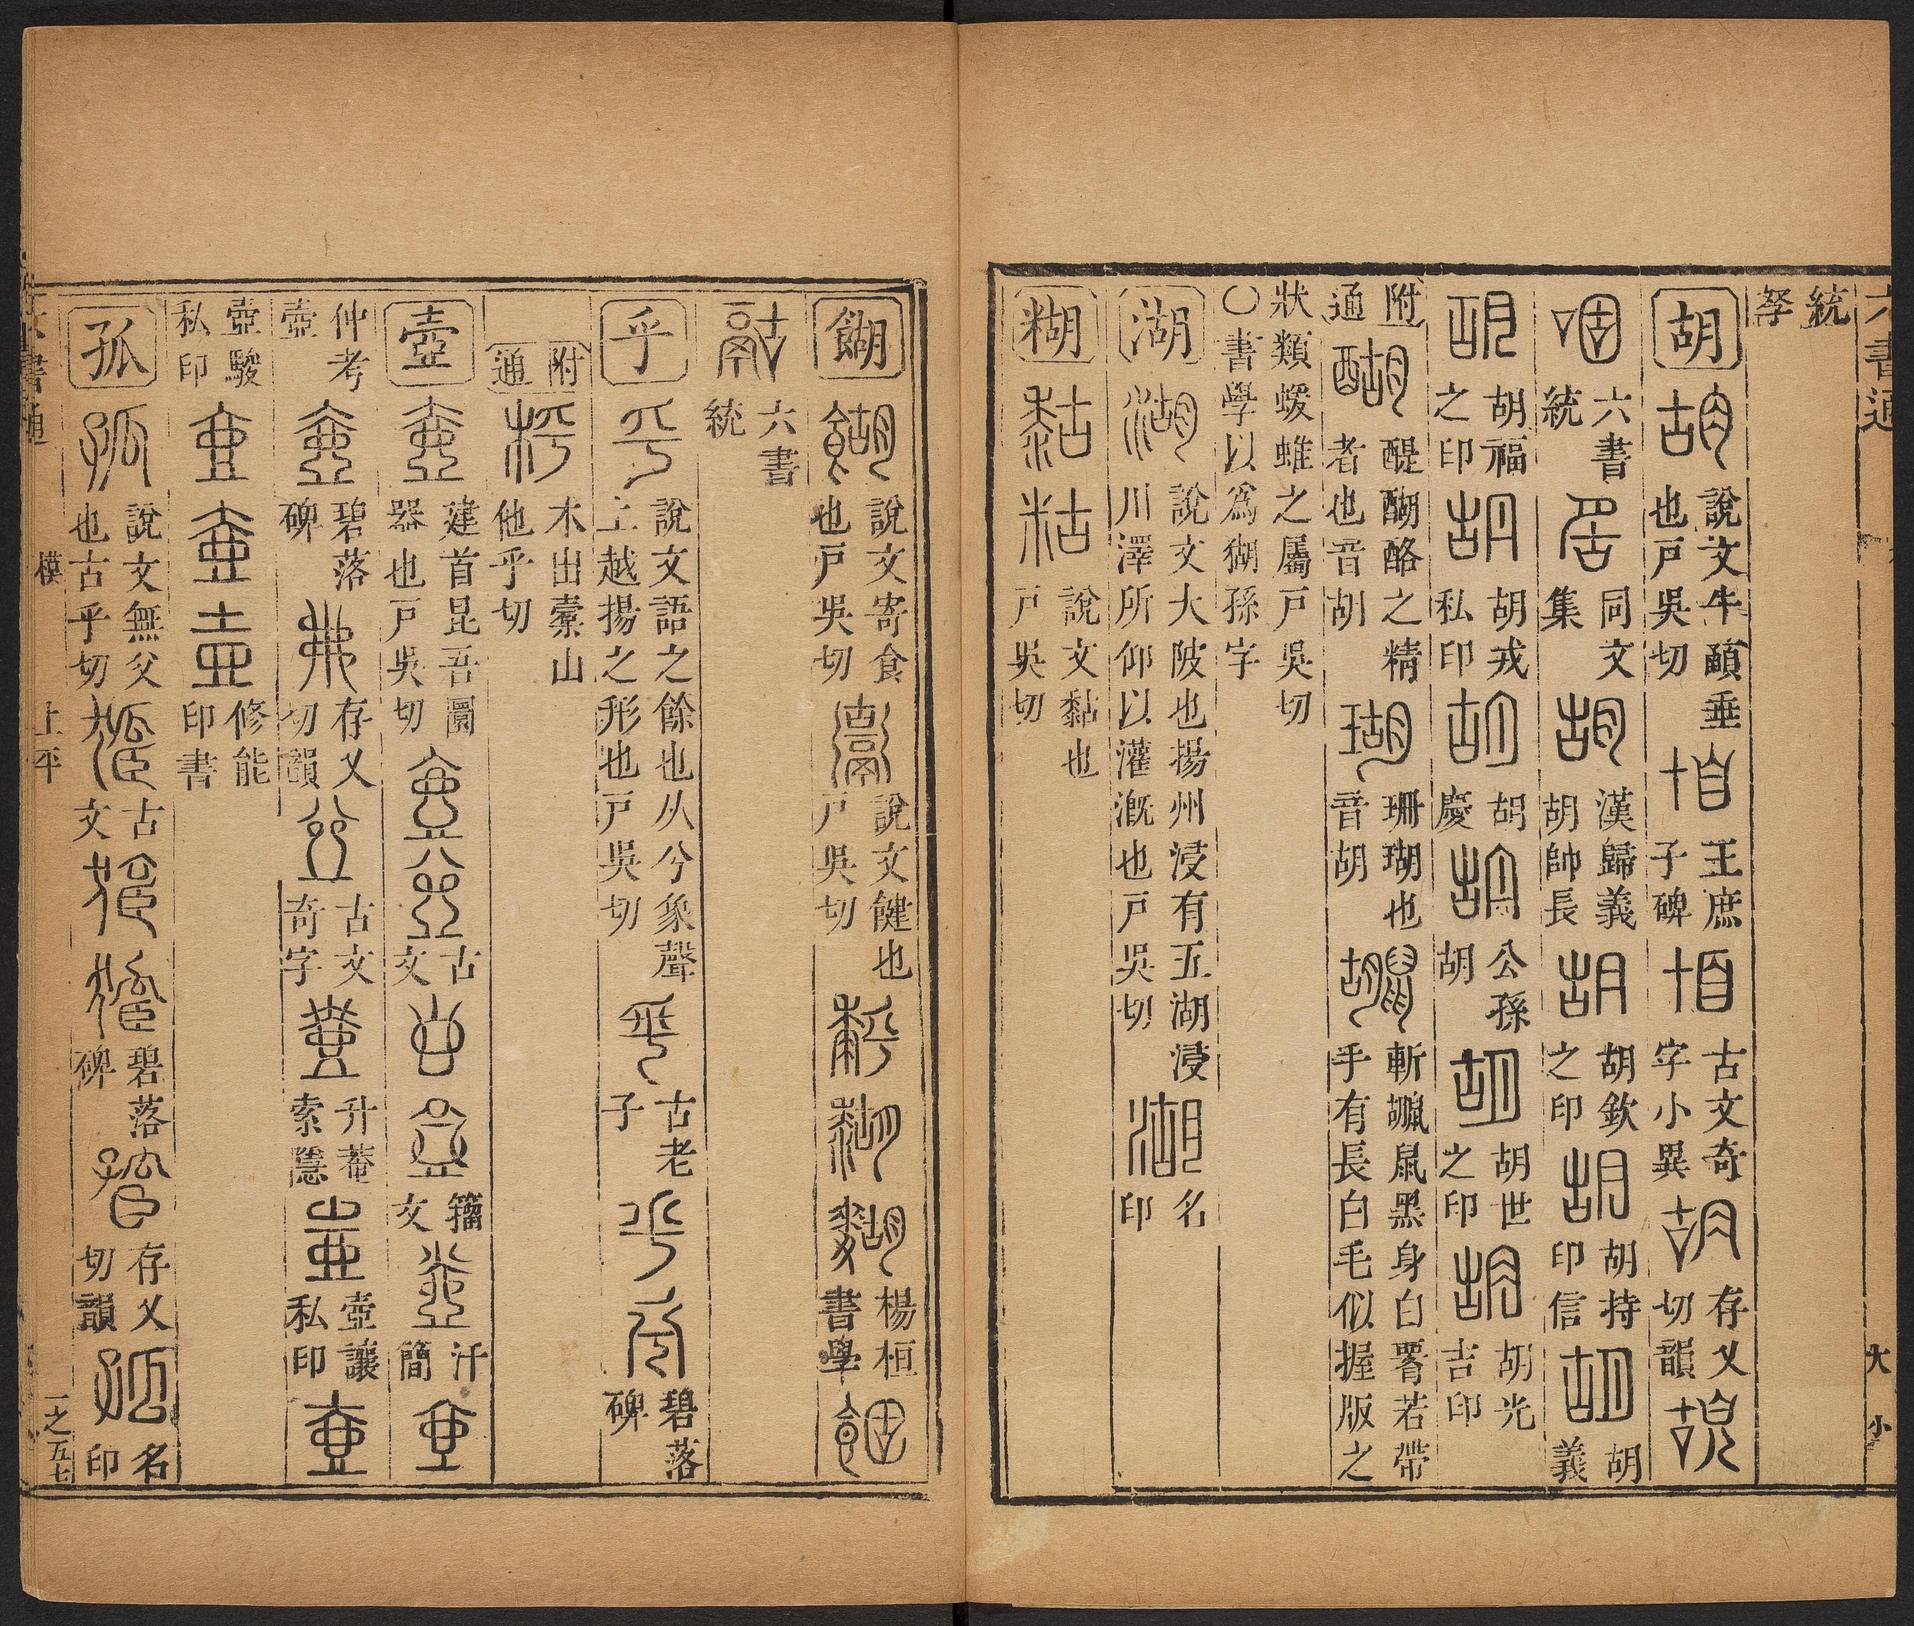 六書通
大 小
統
孥
胡 說文牛顄垂也戸吳切 王庶子碑 古文奇字小異 存乂切韻
六書統 同文集 漢歸義胡帥長 胡欽之印 胡持印信 胡義
胡福之印 胡戎私印 胡慶 公孫胡 胡世之印 胡光吉印
附通 醍醐酪之精者也音胡 珊瑚也音胡 斬鼠黑身白署若帶手有長白毛似握版之
狀類蝯蜼之屬戸吳切
〇書學以爲猢孫字
湖 說文大陂也揚州浸有五湖浸川澤所仰以灌漑也戸吳切 名印
糊 說文黏也戸吳切
餬 說文寄食也戸吳切 說文健也戸吳切 楊桓書學
六書統
乎 說文語之餘也从兮象聲上越揚之形也戸吳切 古老子 碧落碑
附通 木出橐山他乎切
壺 建首昆吾圜器也戸吳切 古文 籀文 汗簡
仲考壺 碧落碑 存乂切韻 古文奇字 升菴索隱 壺讓私印
壺駿私印 修能印書
孤 說文無父也古乎切 古文 碧落碑 存乂切韻 名印
六書通 模 上平 一之五七